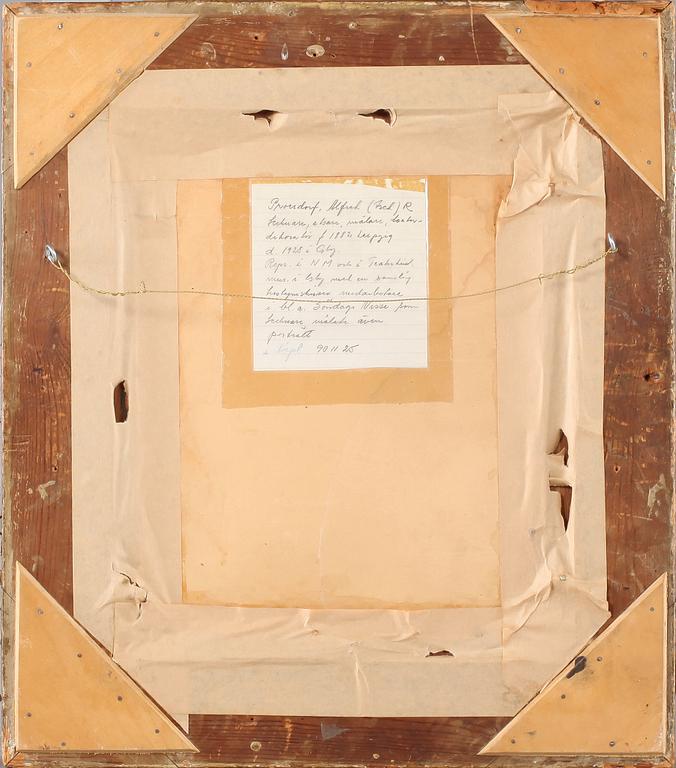 Prorsdorf, Alfred (Fred) R
tecknare, etsare, målare, teater-
dekoratör f 1882 Leipzig
d. 1925 i Esby
Repr. i N M och i Teaterhist.
mus. i Esby med en samling
medarbetare
i bl a. Söndags Nisse som
tecknare, målade även
porträtt
90 11 25